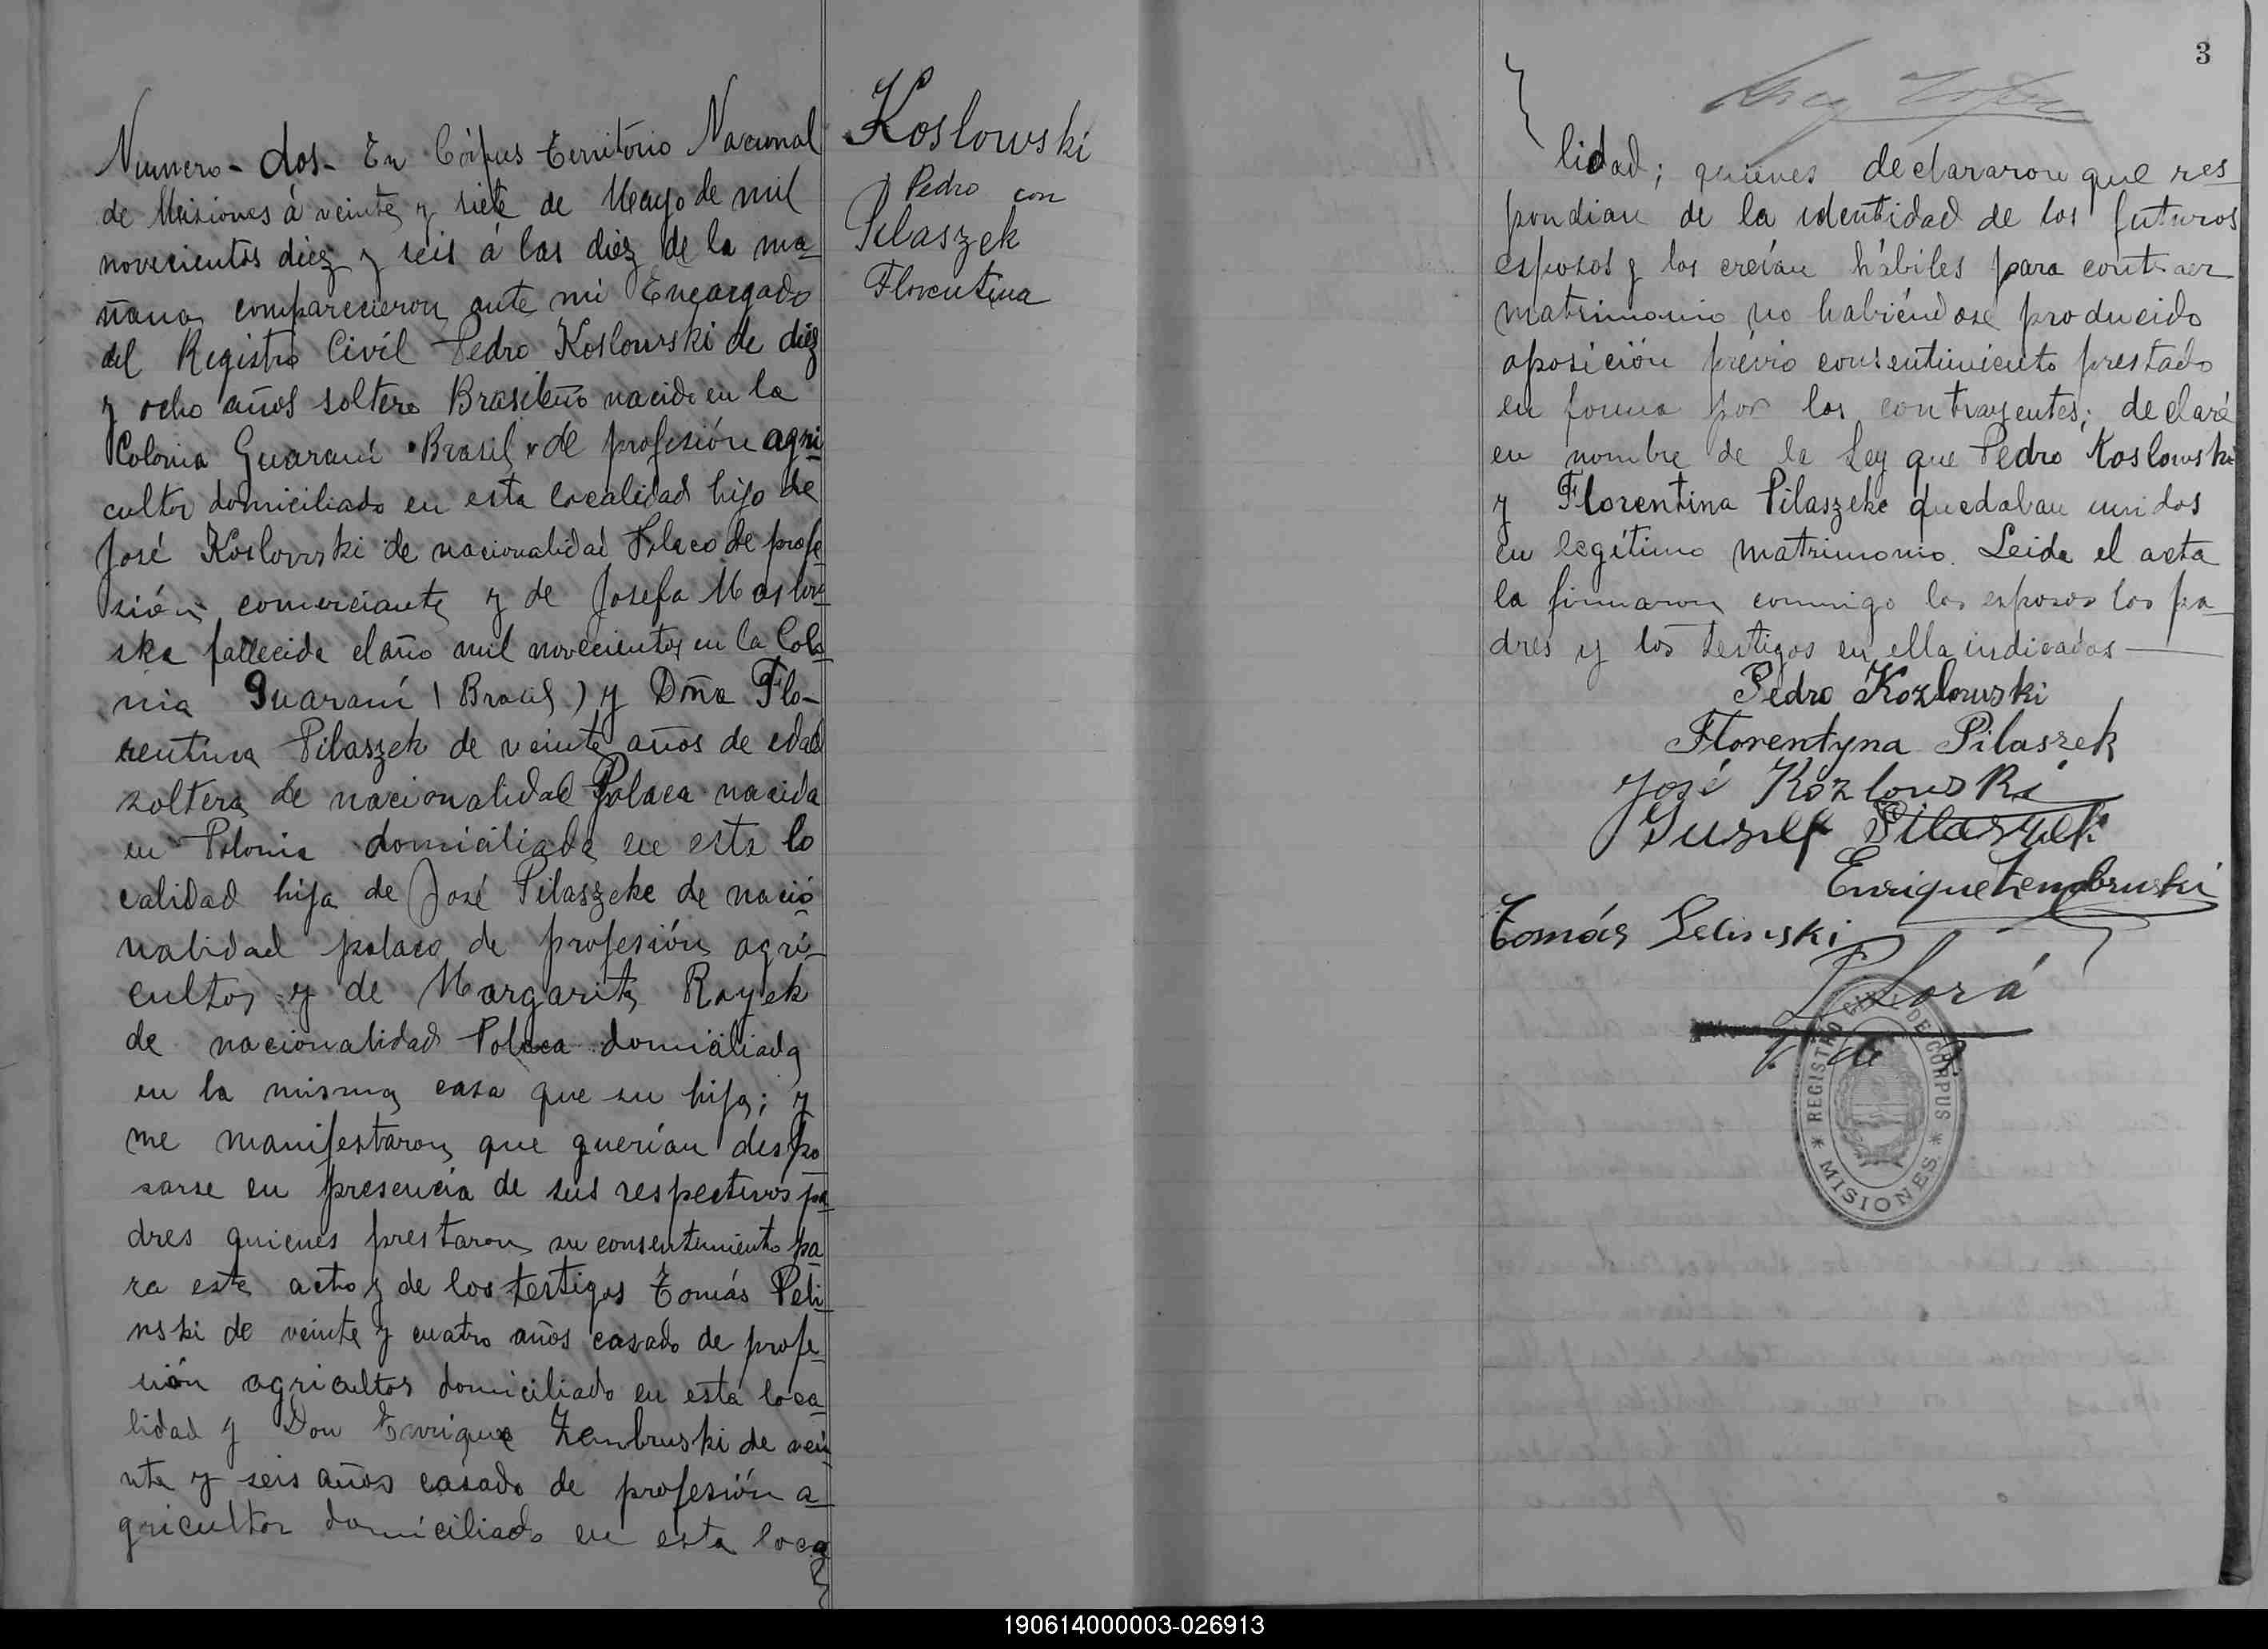 Numero - dos - En Córpus Territorio Nacional
de Misiones á veinte y siete de Mayo de mil
novecientos diez y seis á las diez de la ma
ñana comparecieron ante mi Encargado
del Registro Civíl Pedro Koslowski de diez
y ocho años soltero Brasileño nacido en la
Colonia Guaraní Brasil de profesión agri
cultor domiciliado en esta localidad hijo de
José Koslowski de nacionalidad Polaco de profe
sión comerciante y de Josefa
ska fallecida el año mil novecientos en la Colo
nia Guaraní (Brasil) y Dña Flo-
rentina Pilaszek de veinte años de edad
soltera de nacionalidad Polaca nacida
en Polonia domiciliada en esta lo
calidad hija de José Pilaszeke de nacio
nalidad polaco de profesión agri
cultor y de Margarita Rayek
de nacionalidad Polaca domiciliada
en la misma casa que su hija; y
me manifestaron que querían despo
sarse en presencia de sus respectivos pa
dres quienes prestaron su consentimiento pa
ra este acto y de los testigos Tomás Peli
nski de veinte y cuatro años casado de profe
sión agricultor domiciliado en esta loca
lidad y Don Enrique Zembruski de vei
nte y seis años casado de profesión a
gricultor domiciliado en esta loca
Koslowski
Pedro con
Pilaszek
Florentina
3
lidad; quienes declararon que res
pondian de la identidad de los futuros
esposos y los creían hábiles para contraer
matrimonio no habiéndose producido
oposición prévio consentimiento prestado
en forma por los contrayentes; declaré
en nombre de la Ley que Pedro Koslowski
y Florentina Pilaszeke quedaban unidos
en legítimo matrimonio. Leida el acta
la firmaron conmigo los esposos los pa
dres y los testigos en ella indicados
Pedro Kozlowski
Florentyna Pilaszek
José Kozlowski
Pilaszek
Enrique Zembruski
Tomás Pelinski
REGISTRO CIVIL DE CORPUS
* MISIONES *
190614000003-026913